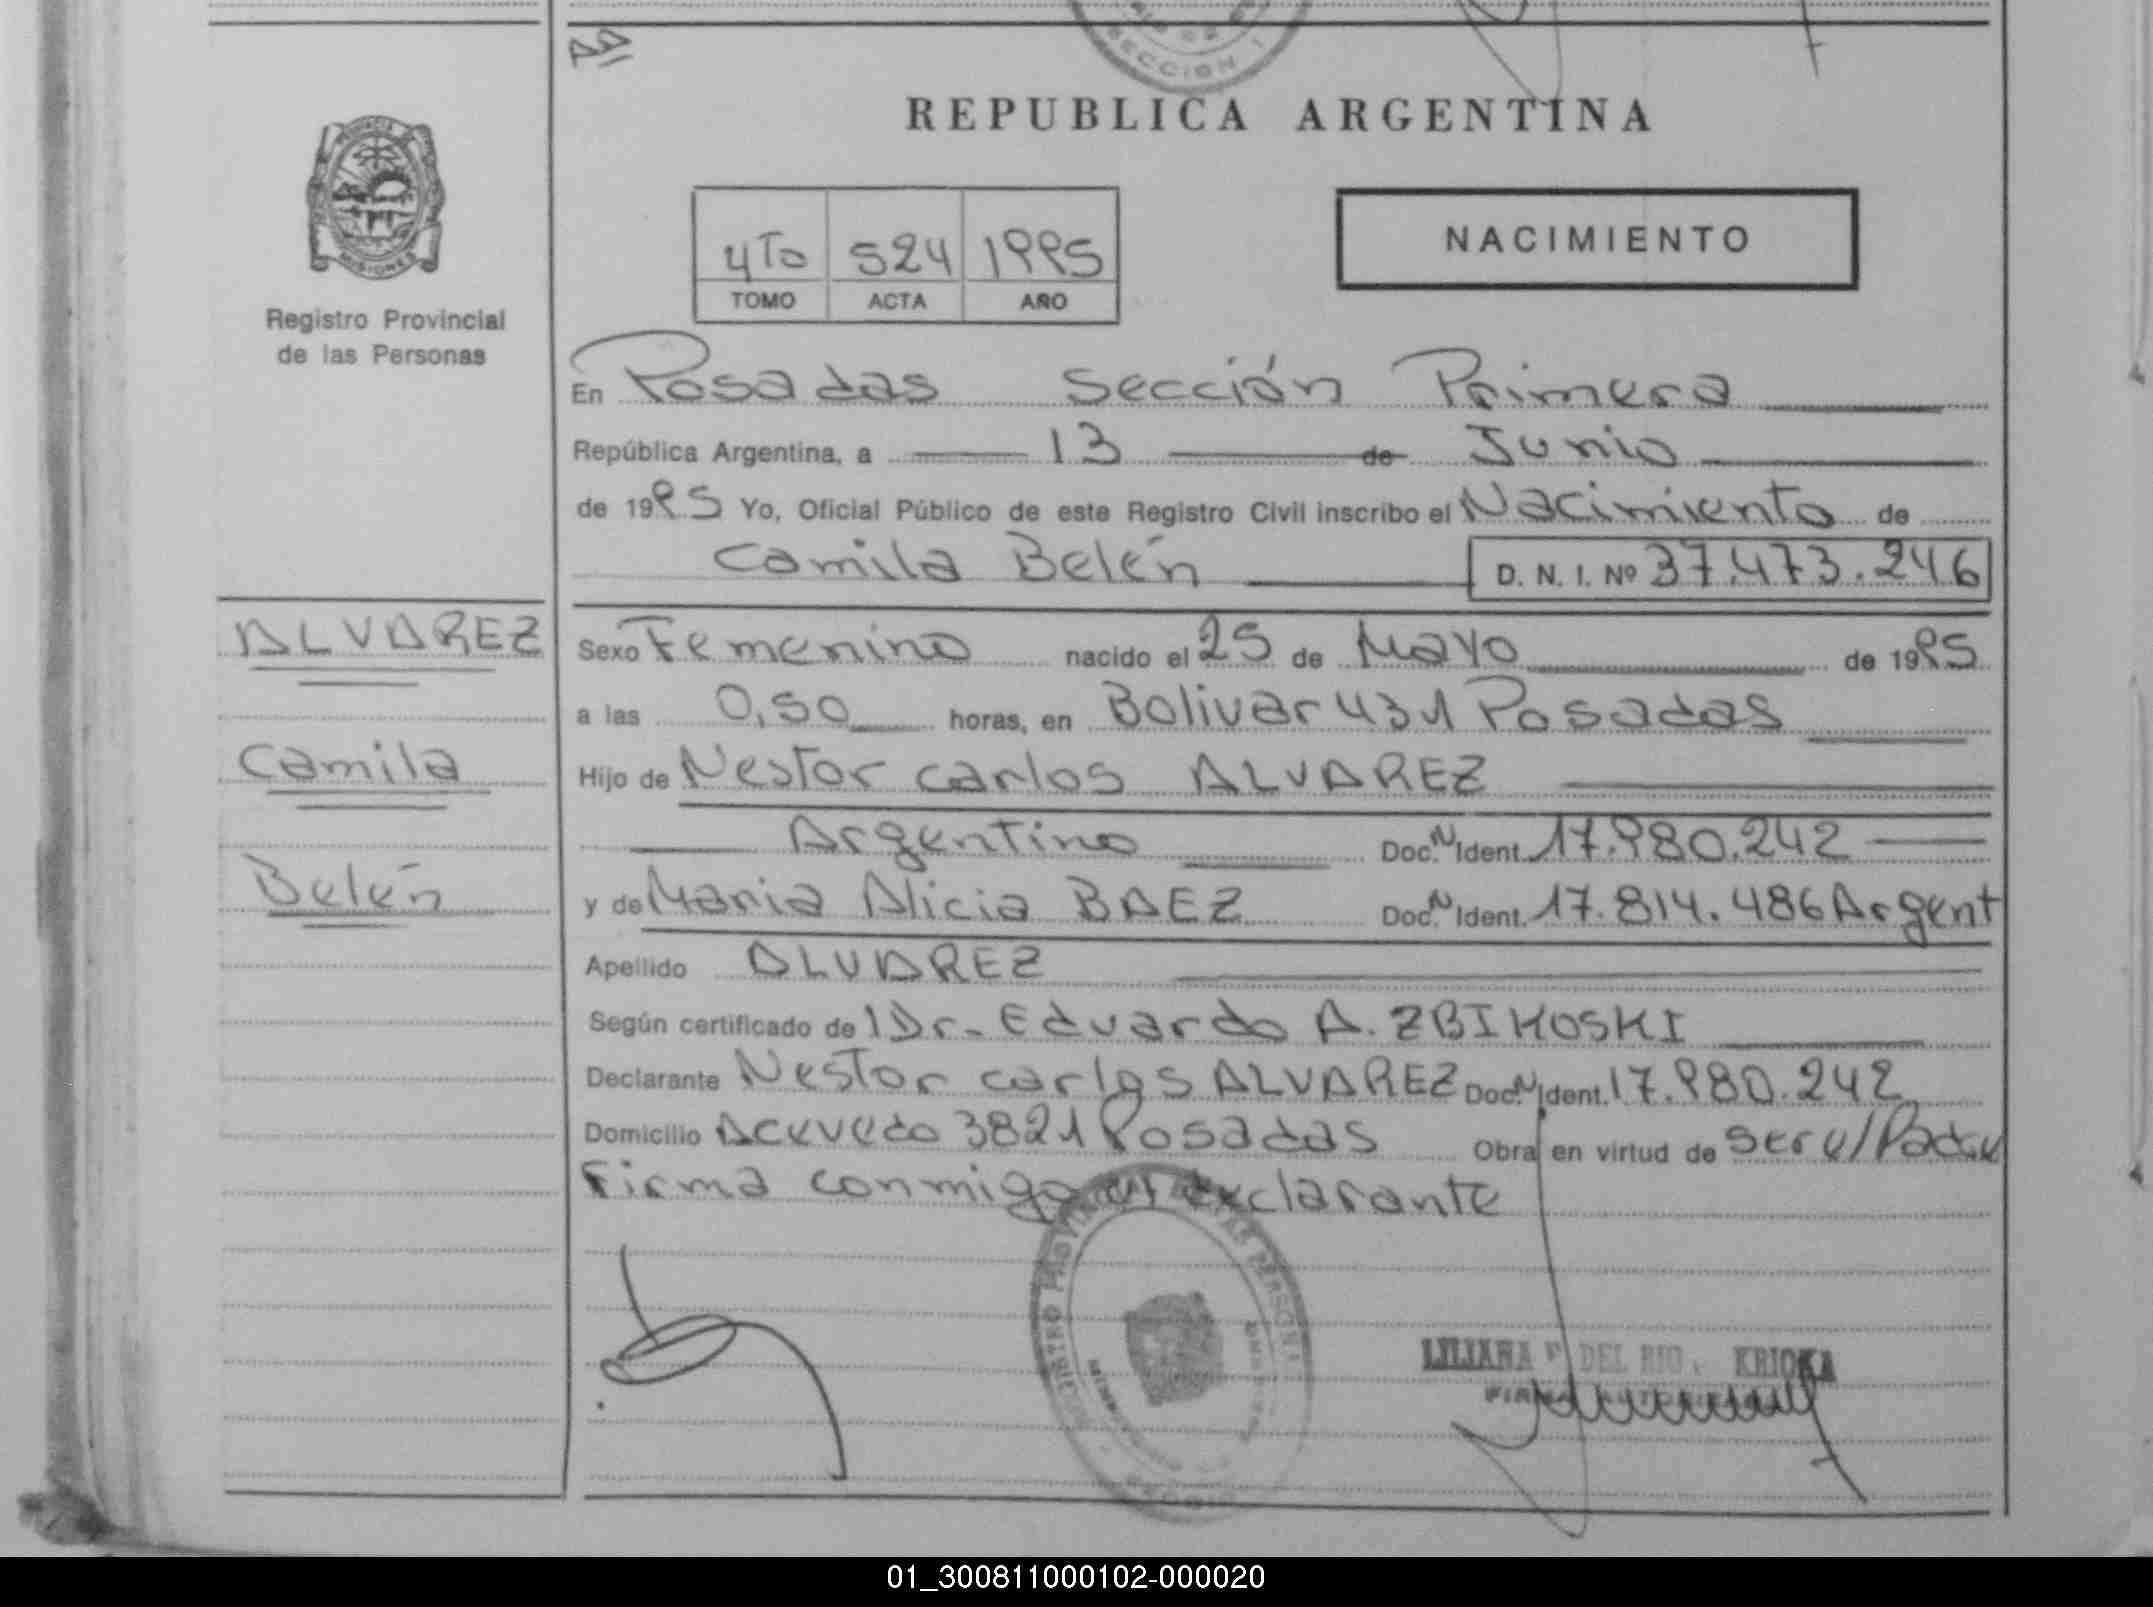 SECCION 1
REPUBLICA ARGENTINA
MISIONES
Registro Provincial
de las Personas
4To 524 1995
TOMO ACTA AÑO
NACIMIENTO
En Posadas Sección Primera
República Argentina, a 13 de Junio
de 1995 Yo, Oficial Público de este Registro Civil inscribo el Nacimiento de
Camila Belén D. N. I. Nº 37.473.246
ALVAREZ
Camila
Belén
Sexo Femenino nacido el 25 de Mayo de 1995
a las 0,50 horas, en Bolivar 431 Posadas
Hijo de Nestor Carlos ALVAREZ
Argentino Doc. N Ident. 17.980.242
y de Maria Alicia BAEZ Doc. N Ident. 17.814.486 Argent
Apellido ALVAREZ
Según certificado de l Dr. Eduardo A. ZBIKOSKI
Declarante Nestor Carlos ALVAREZ Doc. N Ident. 17.980.242
Domicilio Acevedo 3821 Posadas Obra en virtud de ser el Padre
Firma conmigo el declarante
LILIANA F DEL RIO KRICKA
01_300811000102-000020